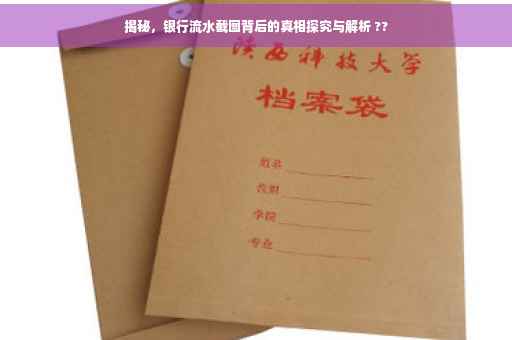 揭秘，银行流水截图背后的真相探究与解析 ??
陕西科技大学
档案袋
姓名
学院
专业